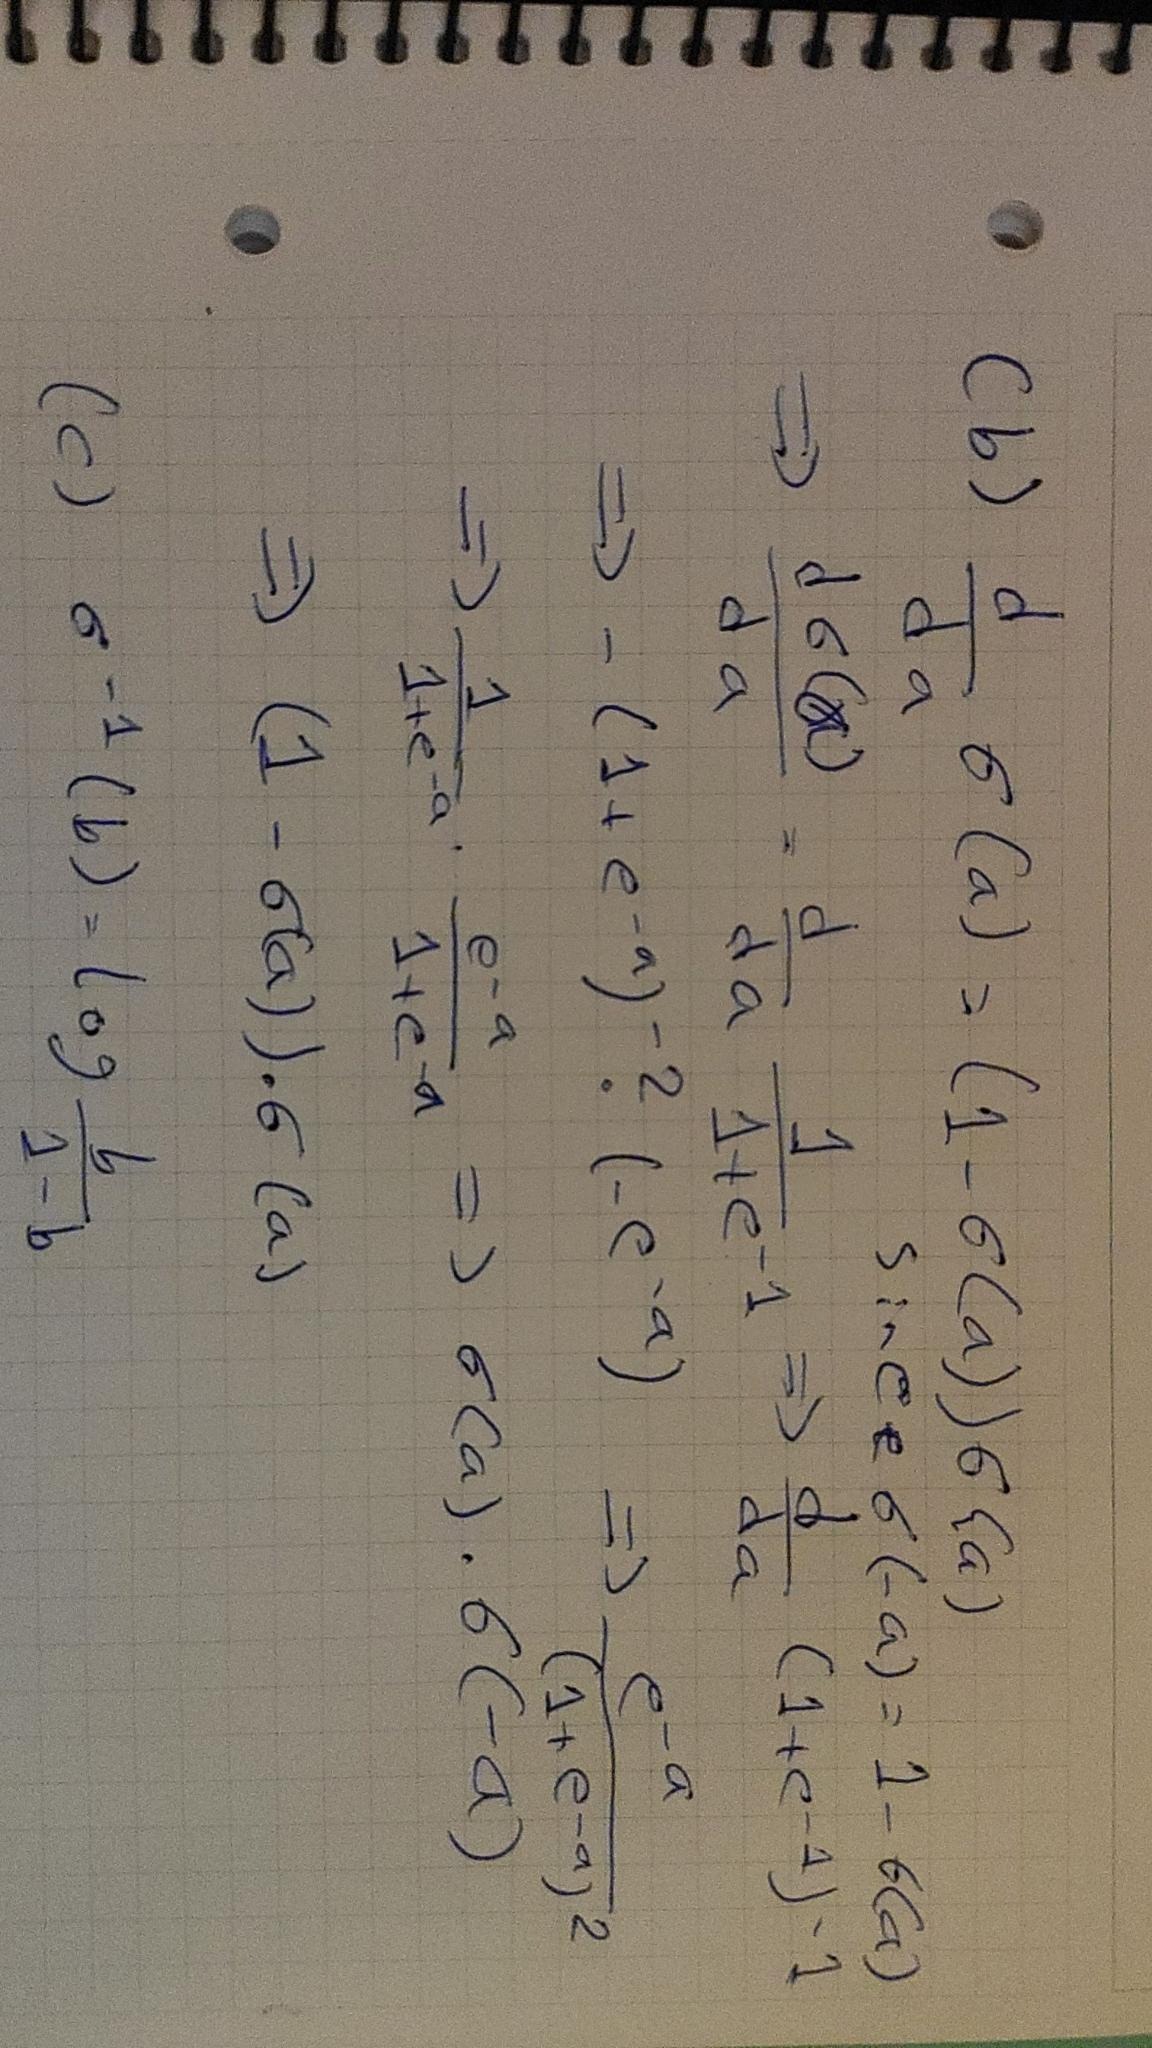 (b) d/da σ(a) = (1 - σ(a)) σ(a)
since σ(-a) = 1 - σ(a)
⇒ dσ(a)/da = d/da 1/(1+e^-1) ⇒ d/da (1+e^-1)^-1
⇒ - (1+e^-a)^-2 · (-e^-a) ⇒ e^-a/(1+e^-a)^2
⇒ 1/(1+e^-a) · e^-a/(1+e^-a) ⇒ σ(a) · σ(-a)
⇒ (1 - σ(a)) · σ(a)
(c) σ^-1(b) = log b/(1-b)